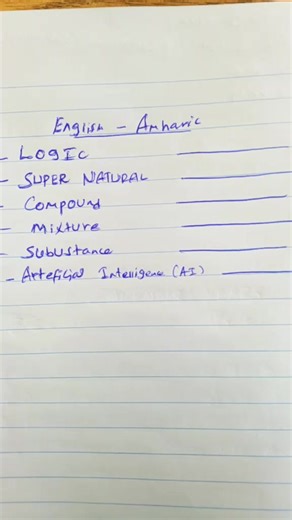 English - Amharic
- LOGIC
- SUPER NATURAL
- Compound
- Mixture
- Subustance
- Arteficial Intelligence (AI)